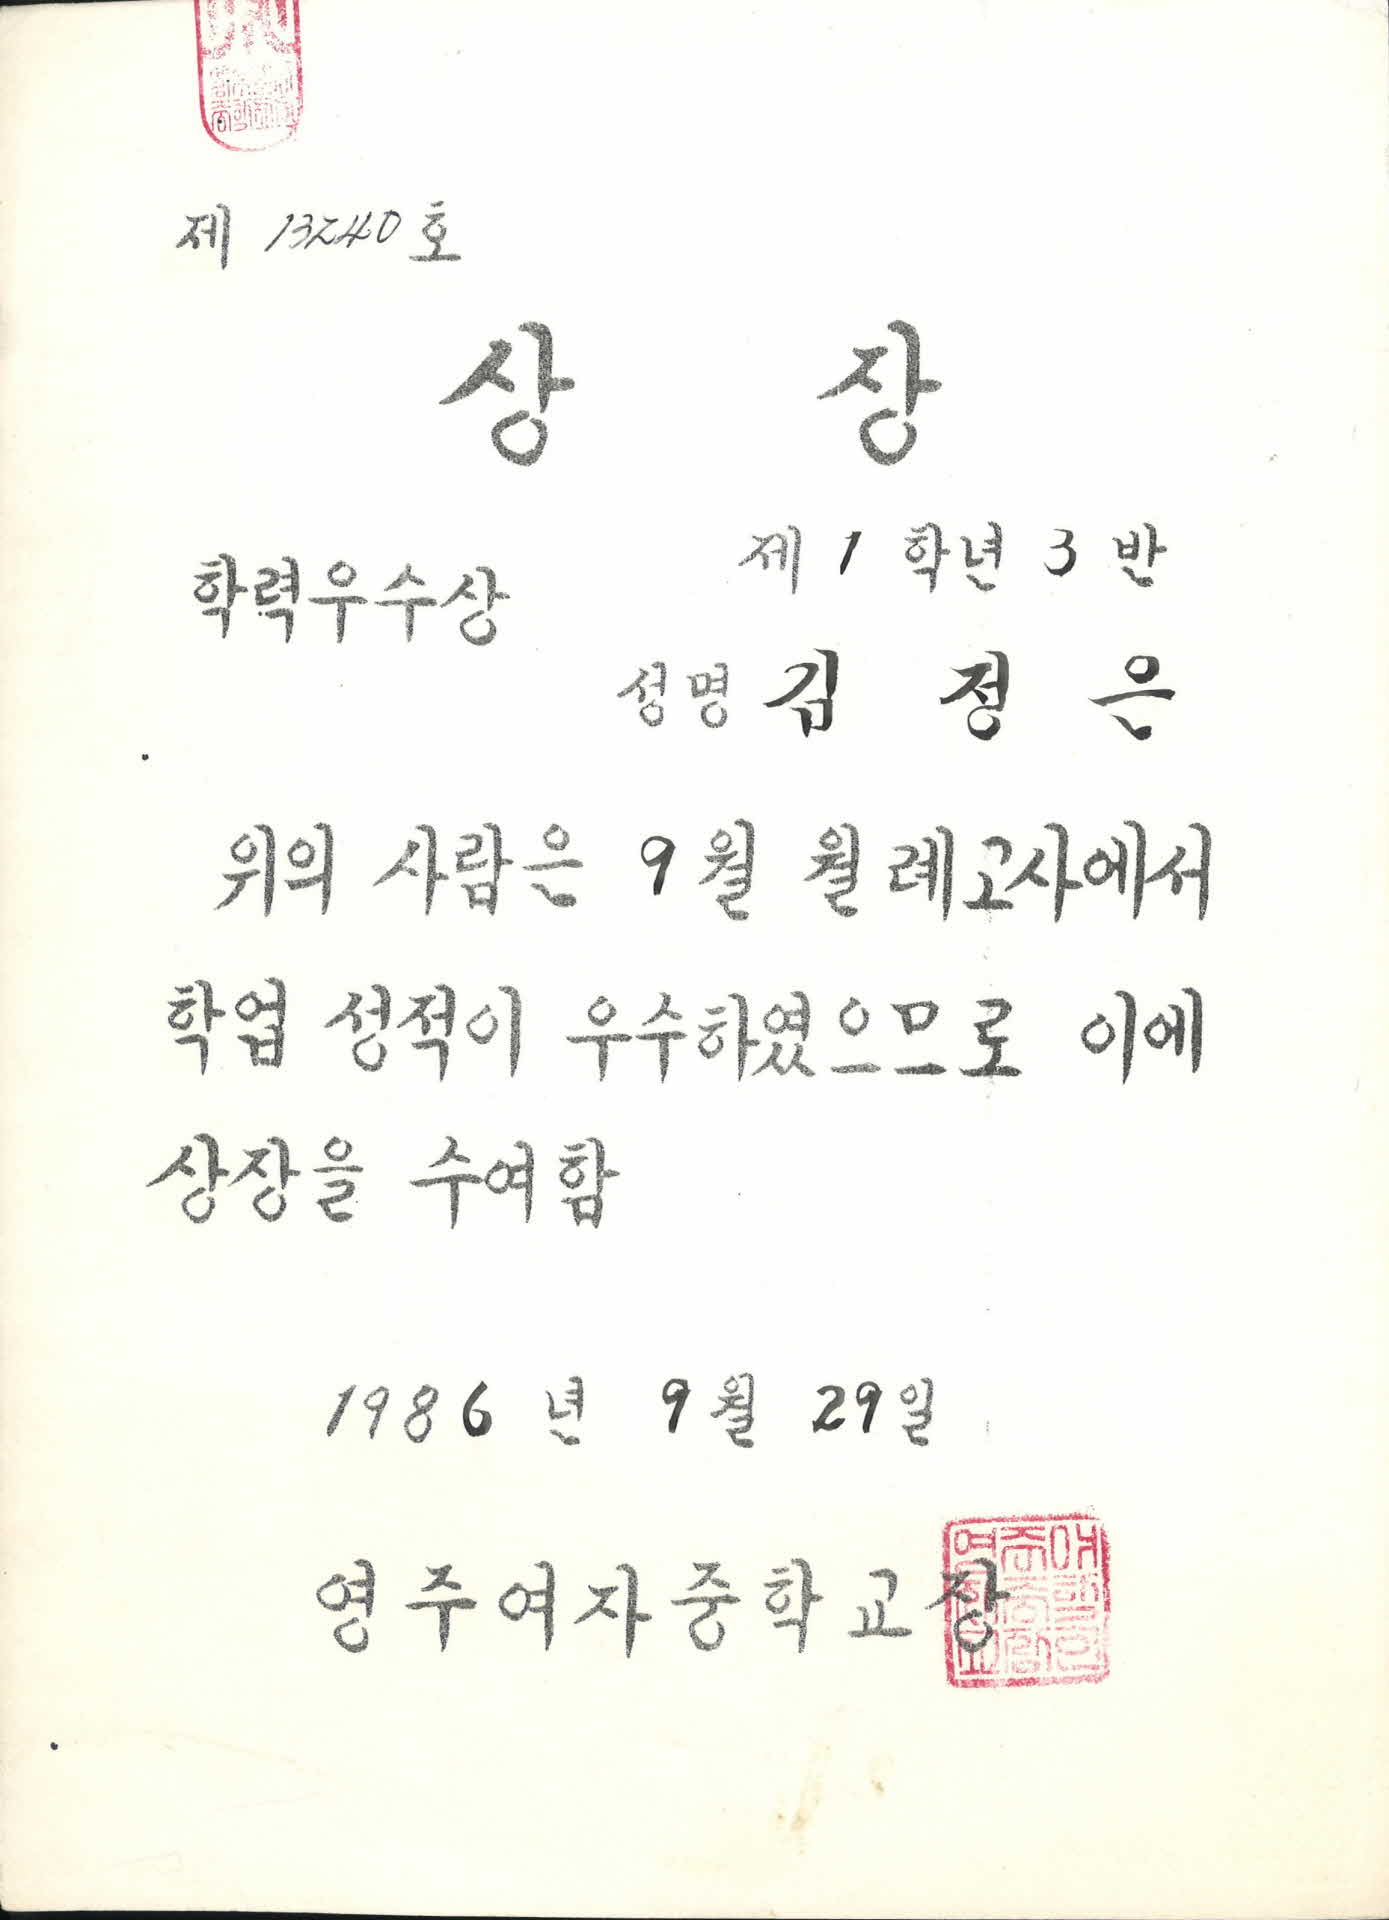 제 13240 호
상 장
학력우수상
제 1 학년 3 반
성명 김 정 은
위의 사람은 9월 월례고사에서
학업 성적이 우수하였으므로 이에
상장을 수여함
1986 년 9 월 29 일
영주여자중학교장